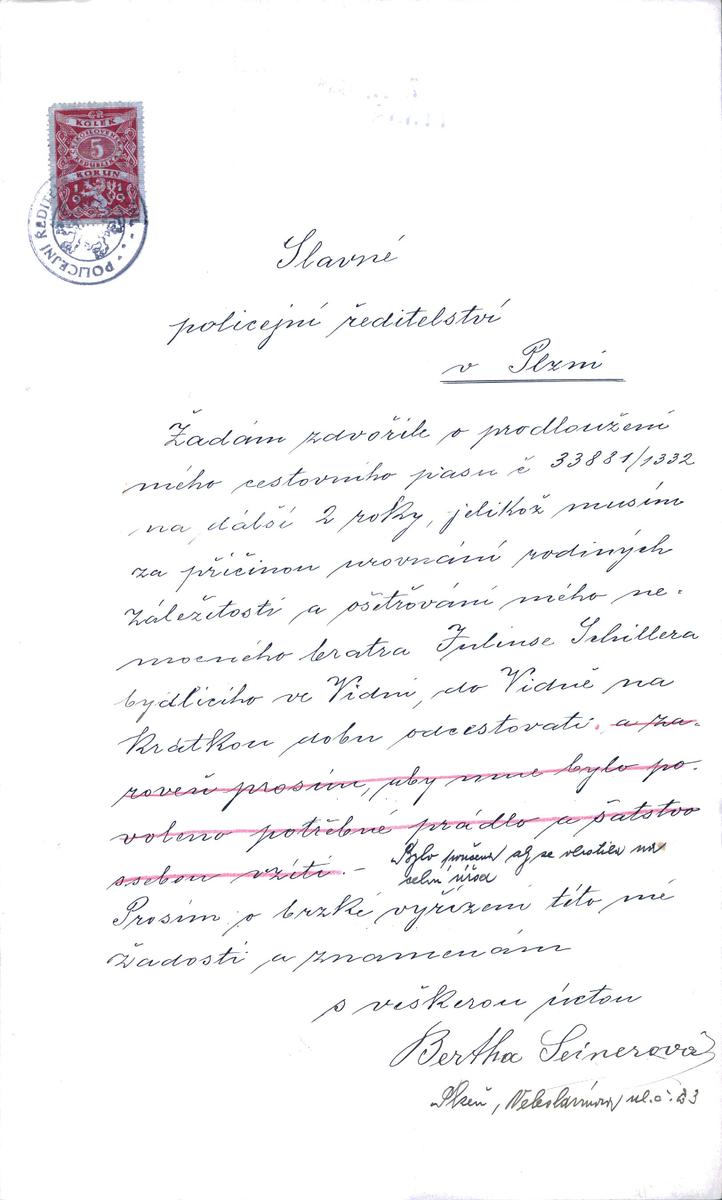 KOLEK
ČESKOSLOVENSKÁ
5
REPUBLIKA
KORUN
1919
POLICEJNÍ ŘEDITE
Slavné
policejní ředitelství
v Plzni
Žádám zdvořile o prodloužení
mého cestovního pasu č 33881/1332
na dálší 2 roky, jelikož musím
za příčinou urovnání rodiných
záležitostí a ošetřování mého ne-
mocného bratra Juliuse Schillera
bydlícího ve Vídni, do Vídně na
krátkou dobu odcestovati. a za-
roveň prosím, aby mne bylo po-
voleno potřebné prádlo a šatstvo
ssebou vzíti. -
Bylo aby se obrátila na
celní úřad
Prosím o brzké vyřízení této mé
žadosti a znamenám
s veškerou úctou
Bertha Seinerová
Plzeň, Veleslavínova ul. č. 23